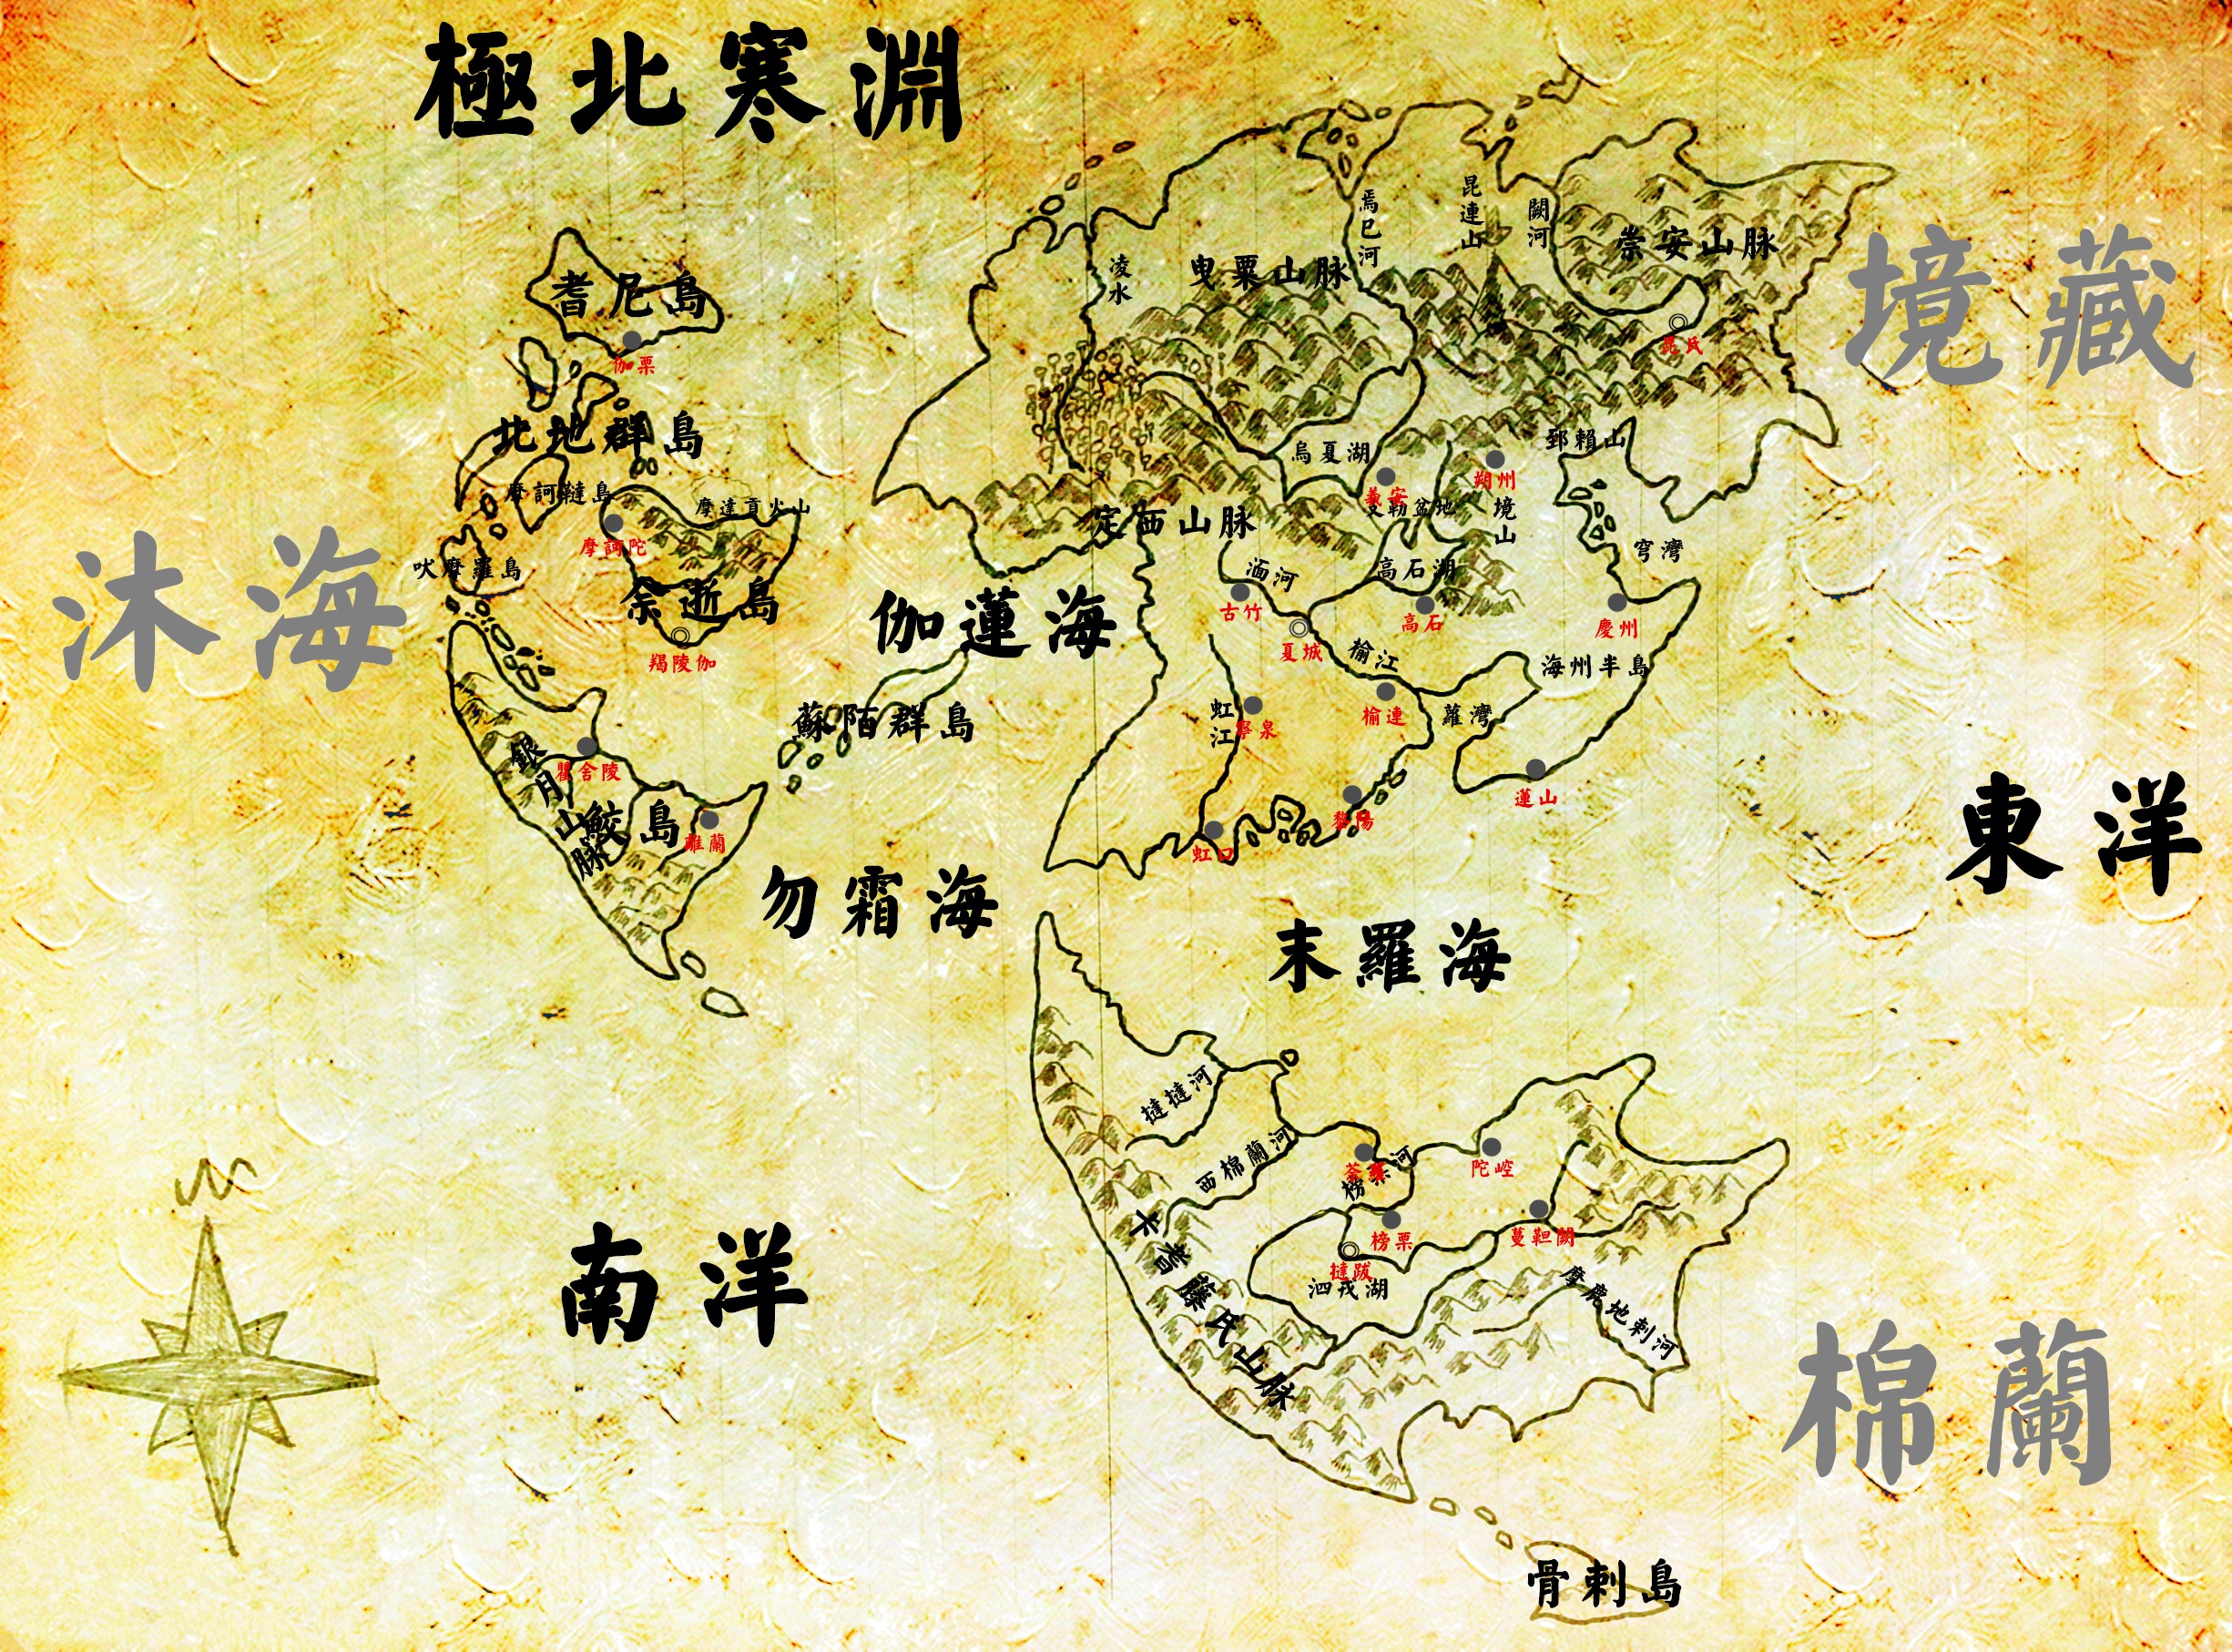 極北寒淵
焉巳河
昆連山
闕河
崇安山脈
凌水
曳粟山脈
境藏
耆尼島
伽栗
昆氏
北地群島
烏夏湖
郅賴山
朔州
義安
摩訶韃島
摩達貢火山
境山
定西山脈
摩訶陀
穹灣
吠摩羅島
沐海
湎河
高石湖
余逝島
古竹
高石
慶州
伽蓮海
夏城
羯陵伽
榆江
海州半島
虹江
寧泉
榆連
蘿灣
蘇陌群島
銀月山脈
瞿舍陵
鮫島
離蘭
黎陽
蓮山
虹口
東洋
勿霜海
末羅海
撻撻河
西棉蘭河
榜栗河
陀崆
卡耆藤氏山脈
榜栗
蔓靼闕
撻跋
泗戎湖
摩鹿地刺河
南洋
棉蘭
骨刺島